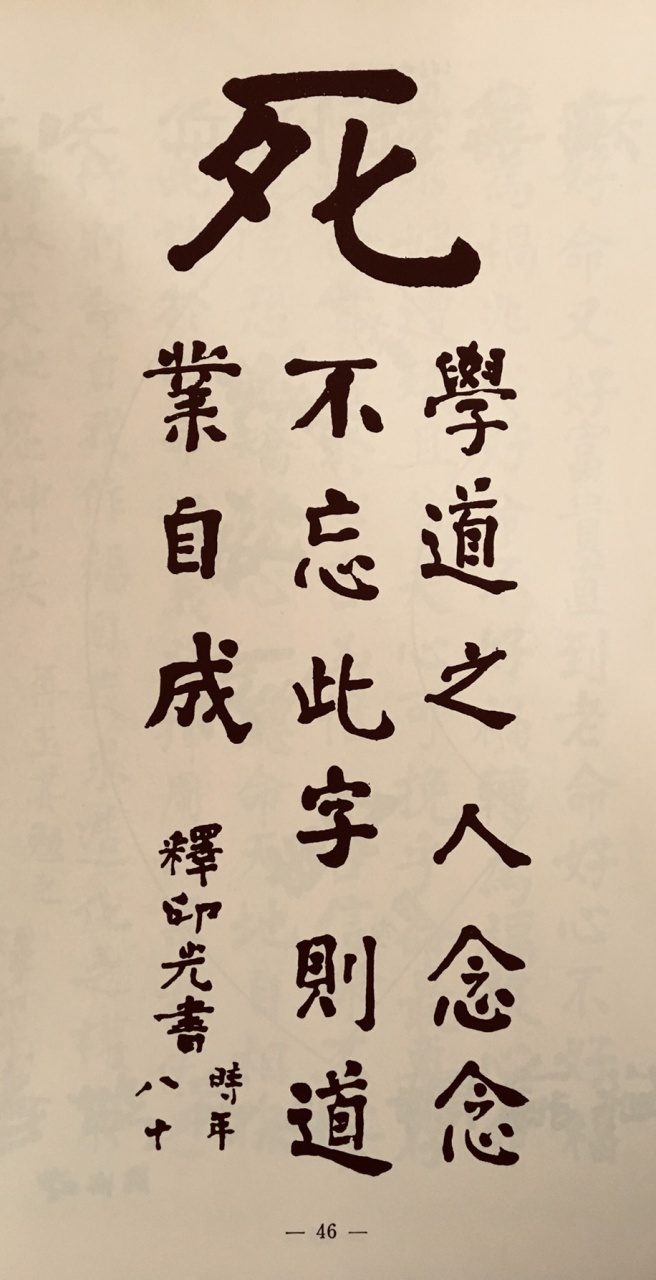 死
學道之人念念
不忘此字則道
業自成
釋印光書
時年
八十
— 46 —